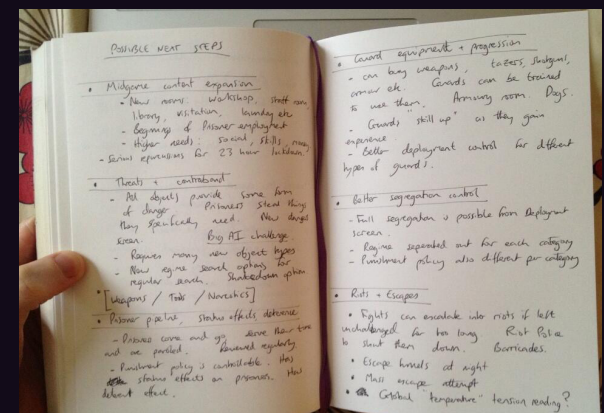 POSSIBLE NEXT STEPS
• Midgame content expansion
- New rooms: workshop, staff room,
library, visitation, laundry etc
- Beginnings of Prisoner employment
- Higher needs: social, skills, money
- Serious repercussions for 23 hour lockdown?
• Threats + contraband
- All objects provide some form
of danger. Prisoners steal things
they specifically need. New danger
screen. Big AI challenge.
- Requires many new object types
- New regime search options for
regular search. Shakedown option
• [Weapons / Tools / Narcotics]
• Prisoner pipeline, status effects, deterrence
- Prisoners come and go, serve their time
and are paroled. Reviewed regularly
- Punishment policy is controllable. Has
status effects on prisoners. Has
deterrent effect.
• Guard equipment + progression
- Can buy weapons, tazers, shotguns,
armour etc. Guards can be trained
to use them. Armoury room. Dogs.
- Guards "skill up" as they gain
experience
- Better deployment control for different
types of guards.
• Better segregation control
- Full segregation is possible from Deployment
screen.
- Regime separated out for each category
- Punishment policy also different per category
• Riots + Escapes
• Fights can escalate into riots if left
unchallenged for too long. Riot Police
to shut them down. Barricades.
• Escape tunnels at night
• Mass escape attempt
• Global "temperature" tension reading?